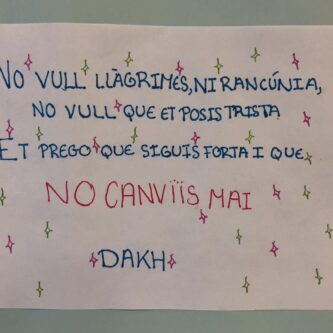 NO VULL LLÀGRIMES, NI RANCÚNIA,
NO VULL QUE ET POSIS TRISTA
ET PREGO QUE SIGUIS FORTA I QUE
NO CANVIÏS MAI
DAKH